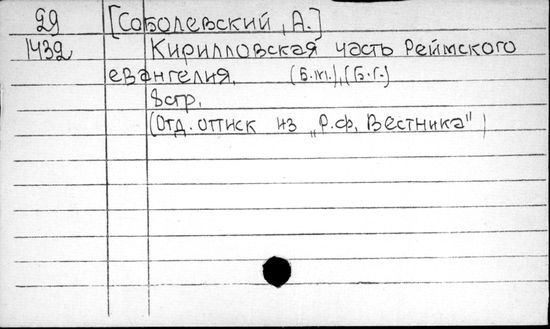 29 [Соболевский, А.]
1432 Кирилловская часть Реймского
евангелия. (б.м.), (б.г.)
8стр.
(Отд. оттиск из „Р.ф. Вестника")